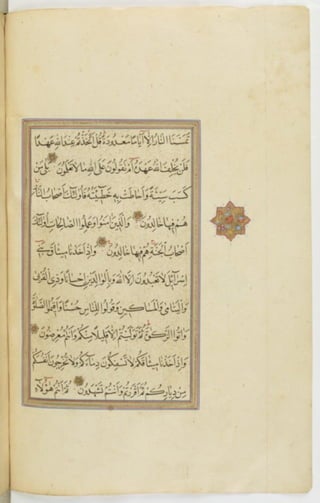 تمسنا النار الا اياما معدودة قل اتخذتم عند الله عهدا
فلن يخلف الله عهده ام تقولون على الله ما لا تعلمون بلى من
كسب سيئة واحاطت به خطيئته فاولئك اصحاب النار
هم فيها خالدون والذين آمنوا وعملوا الصالحات اولئك
اصحاب الجنة هم فيها خالدون واذ اخذنا ميثاق بنى
اسرآئيل لا تعبدون الا الله وبالوالدين احسانا وذى القربى
واليتامى والمساكين وقولوا للناس حسنا واقيموا الصلوة
وآتوا الزكوة ثم توليتم الا قليلا منكم وانتم معرضون
واذ اخذنا ميثاقكم لا تسفكون دمآءكم ولا تخرجون انفسكم
من دياركم ثم اقررتم وانتم تشهدون ثم انتم هؤلآء